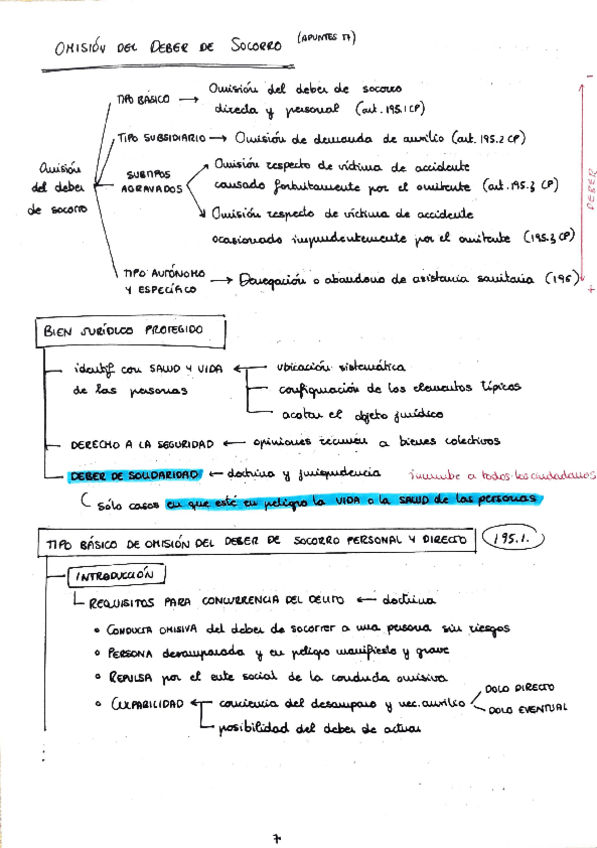 OMISIÓN DEL DEBER DE SOCORRO (APUNTES T7)
TIPO BÁSICO → Omisión del deber de socorro
directa y personal (art. 195.1 CP)
TIPO SUBSIDIARIO → Omisión de demanda de auxilio (art. 195.2 CP)
Omisión
del deber
de socorro
SUBTIPOS
AGRAVADOS
Omisión respecto de víctima de accidente
causado fortuitamente por el omitente (art. 195.3 CP)
Omisión respecto de víctima de accidente
ocasionado imprudentemente por el omitente (195.3 CP)
TIPO AUTÓNOMO
Y ESPECÍFICO → Denegación o abandono de asistencia sanitaria (196)
-
DEBER
+
BIEN JURÍDICO PROTEGIDO
identif con SALUD Y VIDA
de las personas
← ubicación sistemática
configuración de los elementos típicos
acotar el objeto jurídico
DERECHO A LA SEGURIDAD ← opiniones recurren a bienes colectivos
DEBER DE SOLIDARIDAD ← doctrina y jurisprudencia incumbe a todos los ciudadanos
sólo casos en que esté en peligro la VIDA o la SALUD de las personas
TIPO BÁSICO DE OMISIÓN DEL DEBER DE SOCORRO PERSONAL Y DIRECTO 195.1.
INTRODUCCIÓN
REQUISITOS PARA CONCURRENCIA DEL DELITO ← doctrina
• CONDUCTA OMISIVA del deber de socorrer a una persona sin riesgos
• PERSONA desamparada y en peligro manifiesto y grave
• REPULSA por el ente social de la conducta omisiva
• CULPABILIDAD ← conciencia del desamparo y nec. auxilio
DOLO DIRECTO
DOLO EVENTUAL
posibilidad del deber de actuar
7